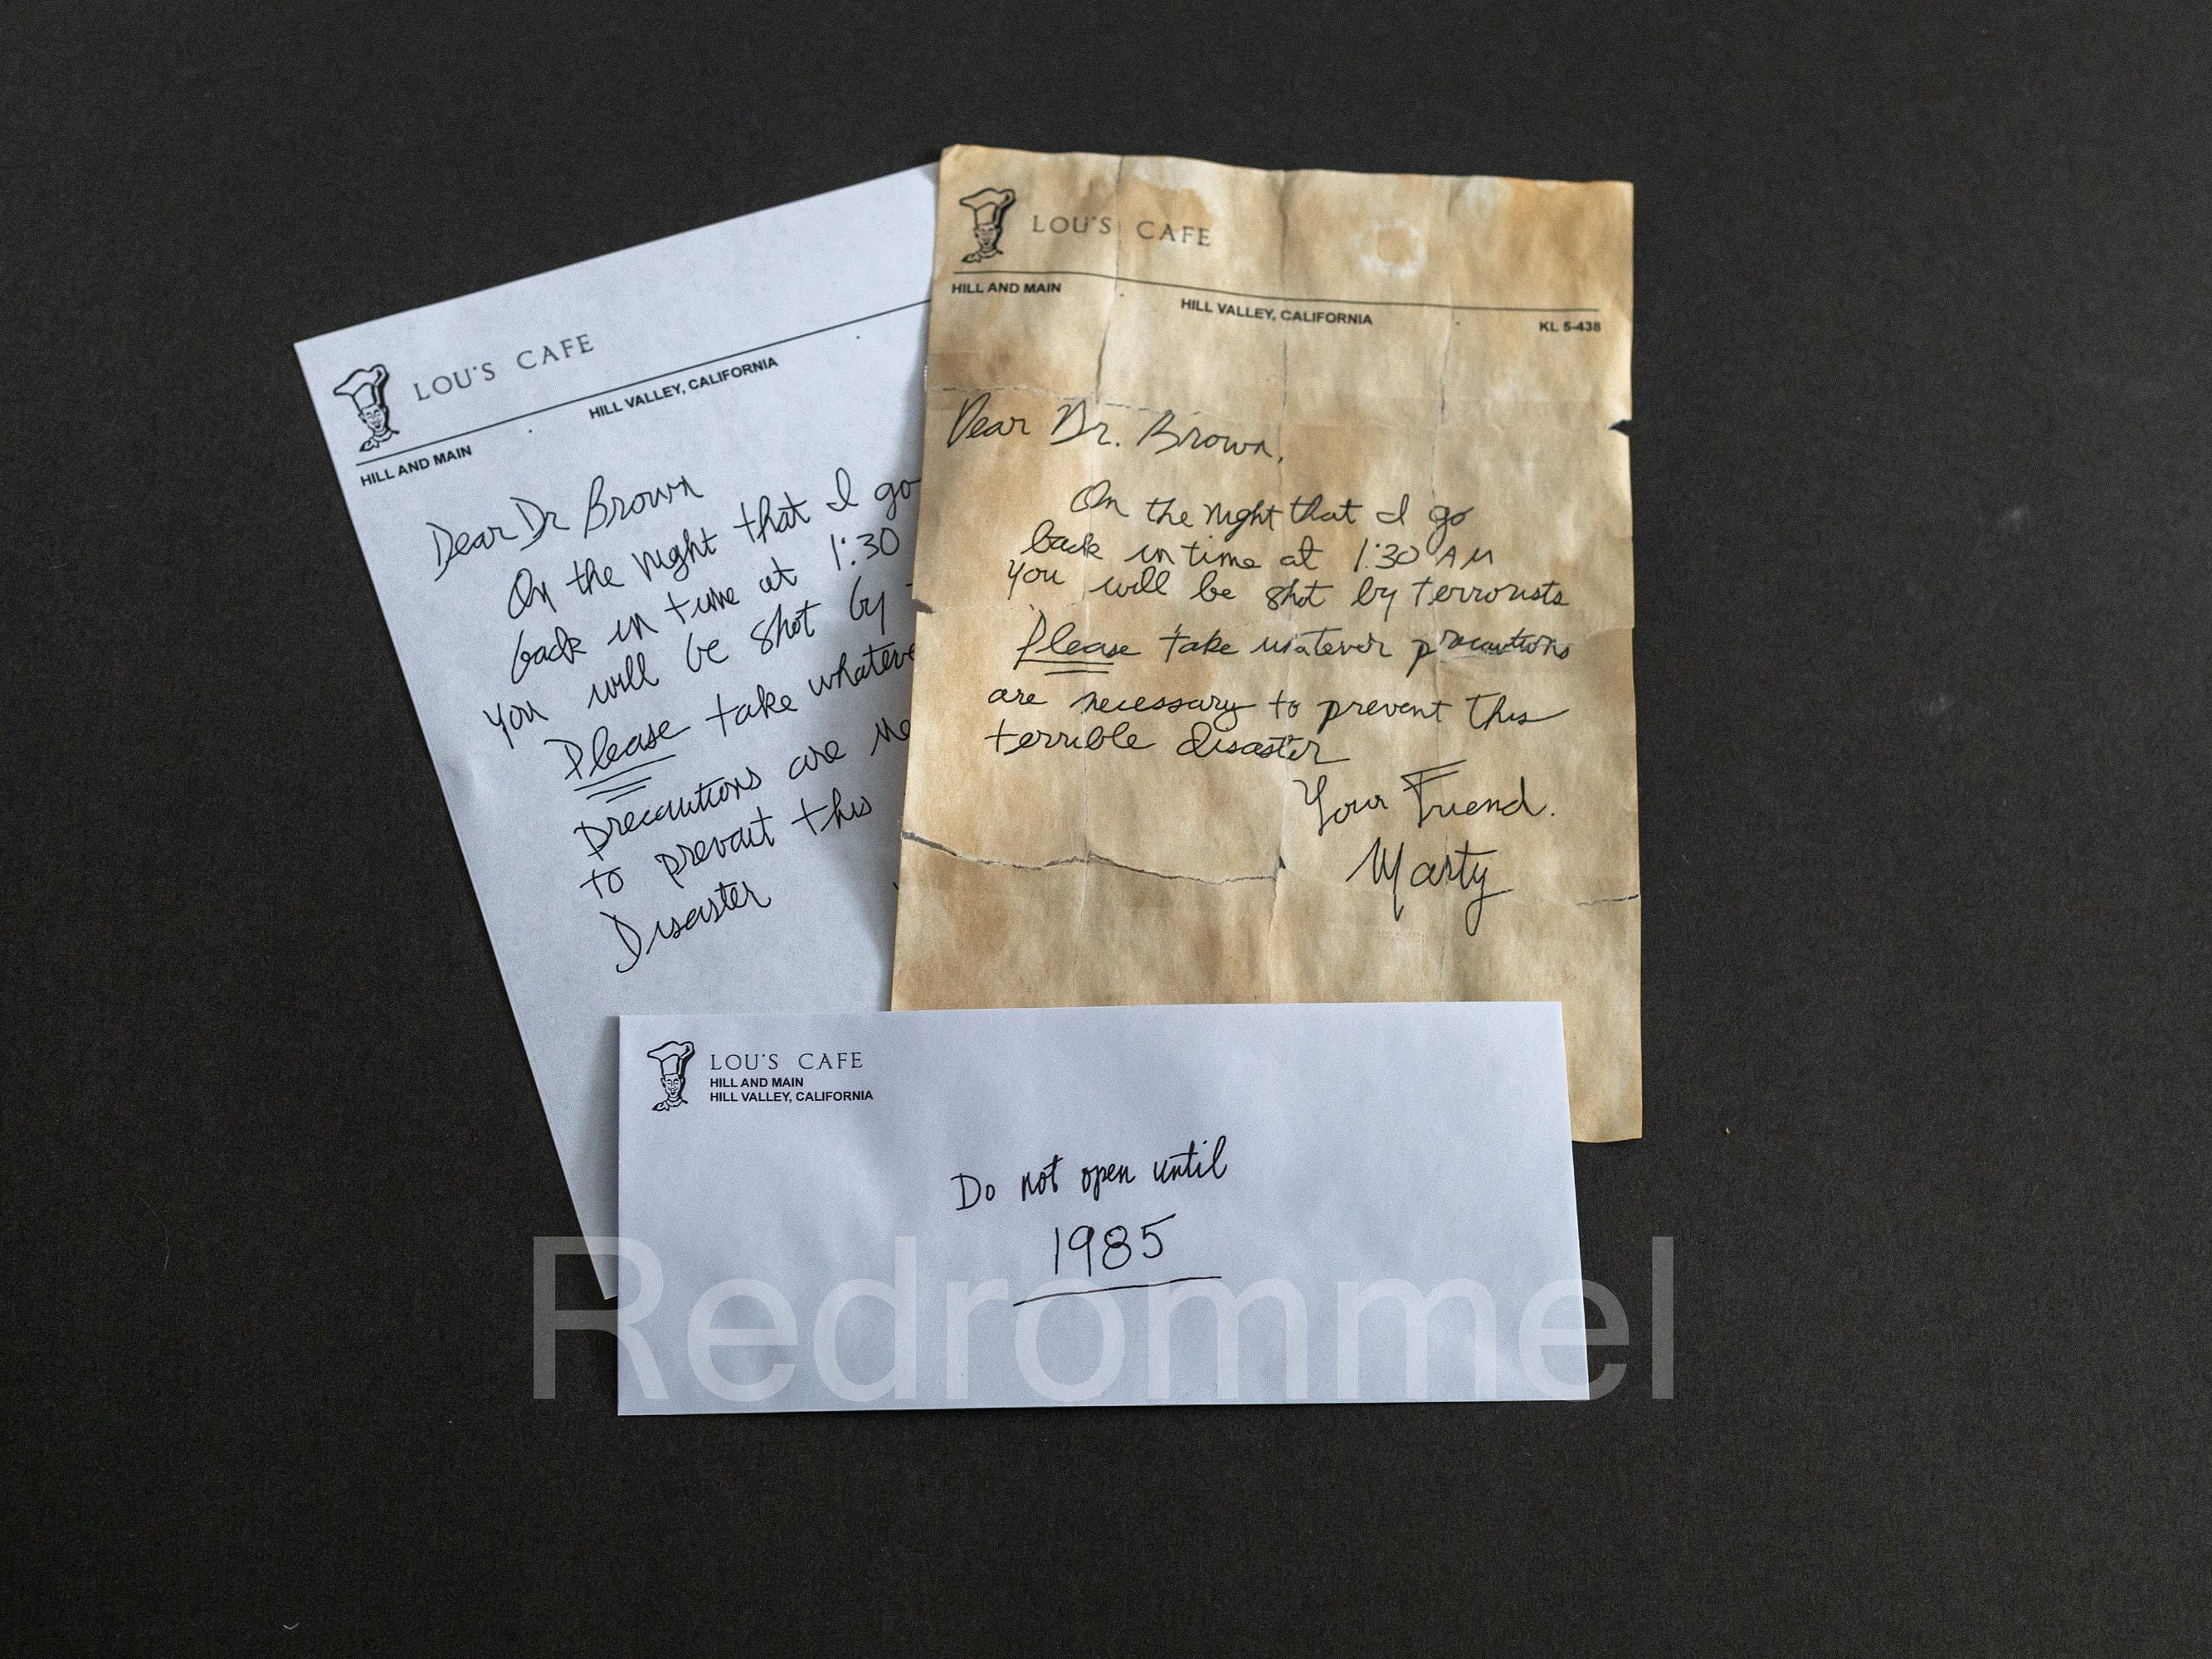 LOU'S CAFE
HILL AND MAIN
HILL VALLEY, CALIFORNIA
Dear Dr Brown
On the night that I go
back in time at 1:30
you will be shot by
Please take whateve
precautions are ne
to prevent this
Disaster
LOU'S CAFE
HILL AND MAIN
HILL VALLEY, CALIFORNIA
KL 5-438
Dear Dr. Brown,
On the night that I go
back in time at 1:30 AM
you will be shot by terrorists
Please take whatever precautions
are necessary to prevent this
terrible disaster
Your Friend.
Marty
LOU'S CAFE
HILL AND MAIN
HILL VALLEY, CALIFORNIA
Do not open until
1985
Redrommel